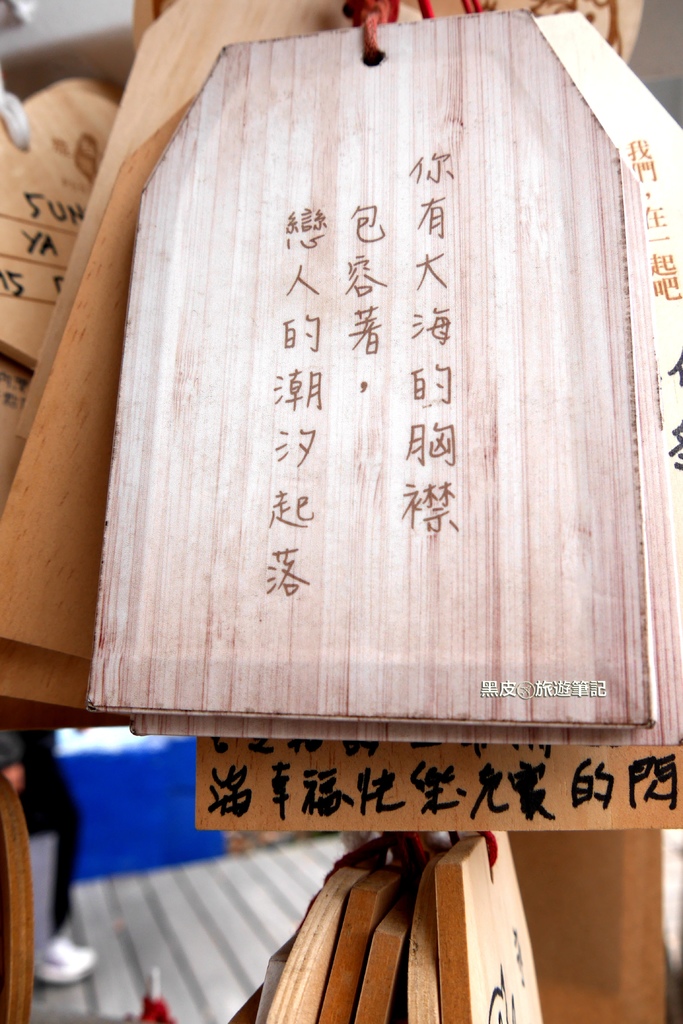 你有大海的胸襟
包容著，
戀人的潮汐起落
我們，在一起吧
SUN
YA
黑皮旅遊筆記
幸福快樂
的閃